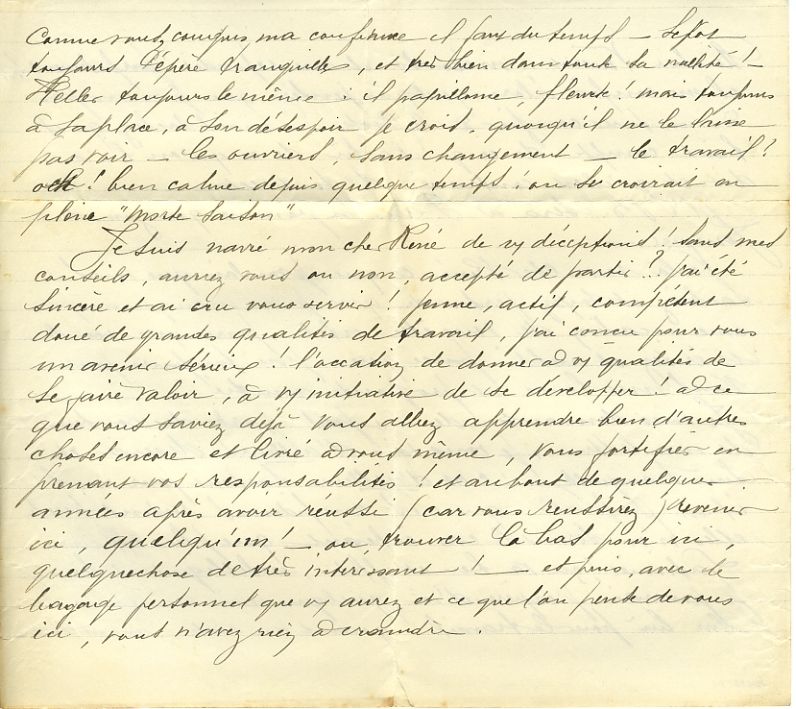 Comme vous, conquis ma confiance il faut du temps —
toujours Pépère tranquille, et très bien dans toute sa nullité! —
Heller toujours le même : il papillonne, fleurte! mais toujours
à sa place, à son désespoir je crois, quoiqu'il ne le laisse
pas voir — les ouvriers, sans changement — le travail?
och! bien calme depuis quelque temps! on se croirait en
pleine "Morte Saison"
Je suis navré mon cher René de vos déceptions! Sans mes
conseils, auriez vous ou non, accepté de partir? j'ai été
sincère et ai cru vous servir! Jeune, actif, compétent
doué de grandes qualités de travail, j'ai concu pour vous
un avenir sérieux! l'occation de donner à vos qualités de
se faire valoir, à vos initiative de se développer! à ce
que vous saviez déjà vous alliez apprendre bien d'autres
choses encore et livré à vous même, vous fortifier en
prenant vos responsabilités! et au bout de quelques
années après avoir réussi (car vous reussirez) revenir
ici, quelqu'un! — ou, trouver là bas pour ici,
quelquechose de très intéressant! — et puis, avec le
bagage personnel que vous aurez et ce que l'on pense de vous
ici, vous n'avez rien à craindre.